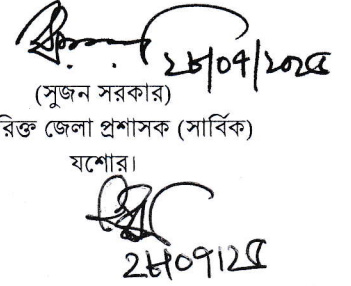 ২৮/০৭/২০২৫
(সুজন সরকার)
রিক্ত জেলা প্রশাসক (সার্বিক)
যশোর।
২৮০৭২৫